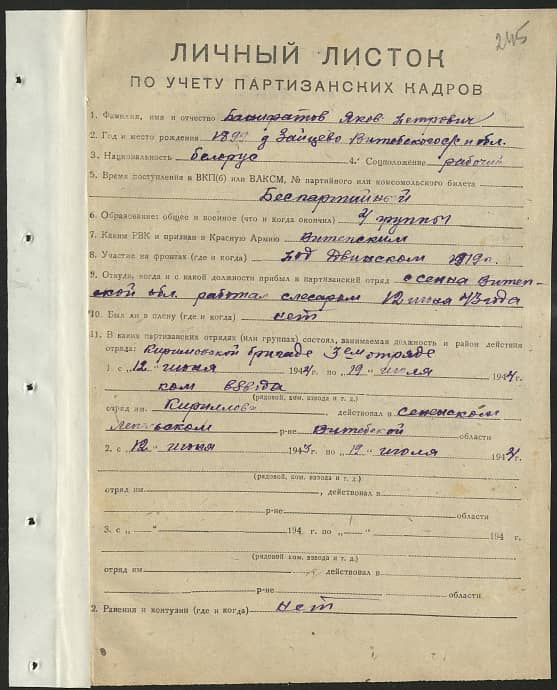 245
ЛИЧНЫЙ ЛИСТОК
ПО УЧЕТУ ПАРТИЗАНСКИХ КАДРОВ
1. Фамилия, имя и отчество Яков Петрович
2. Год и место рождения 1899 д Зайцево Витебского и обл.
3. Национальность белорус 4. Соцположение рабочий
5. Время поступления в ВКП(б) или ВЛКСМ, № партийного или комсомольского билета
Беспартийный
6. Образование: общее и военное (что и когда окончил) группы
7. Каким РВК и призван в Красную Армию Витепским
8. Участие на фронтах (где и когда) под Двинском 1919 г.
9. Откуда, когда и с какой должности прибыл в партизанский отряд с сенна Витеп-
ской обл. работал слесаром 12 июня 43 года
10. Был ли в плену (где и когда) нет
11. В каких партизанских отрядах (или группах) состоял, занимаемая должность и район действия
отряда: бригаде 3ем отряде
1. с „12" июня 194 г. по „19" июля 1944 г.
ком взвода
(рядовой, ком. взвода и т. д.)
отряд им. Кириллова, действовал в сененском
р-не Витебской области
2. с „12" июня 1943 г. по „19" июля 1944 г.
(рядовой, ком. взвода и т. д.)
отряд им. , действовал в
р-не области
3. с „ " 194 г. по „ " 194 г.
(рядовой, ком. взвода и т. д.)
отряд им. , действовал в
р-не области.
2. Ранения и контузии (где и когда) нет